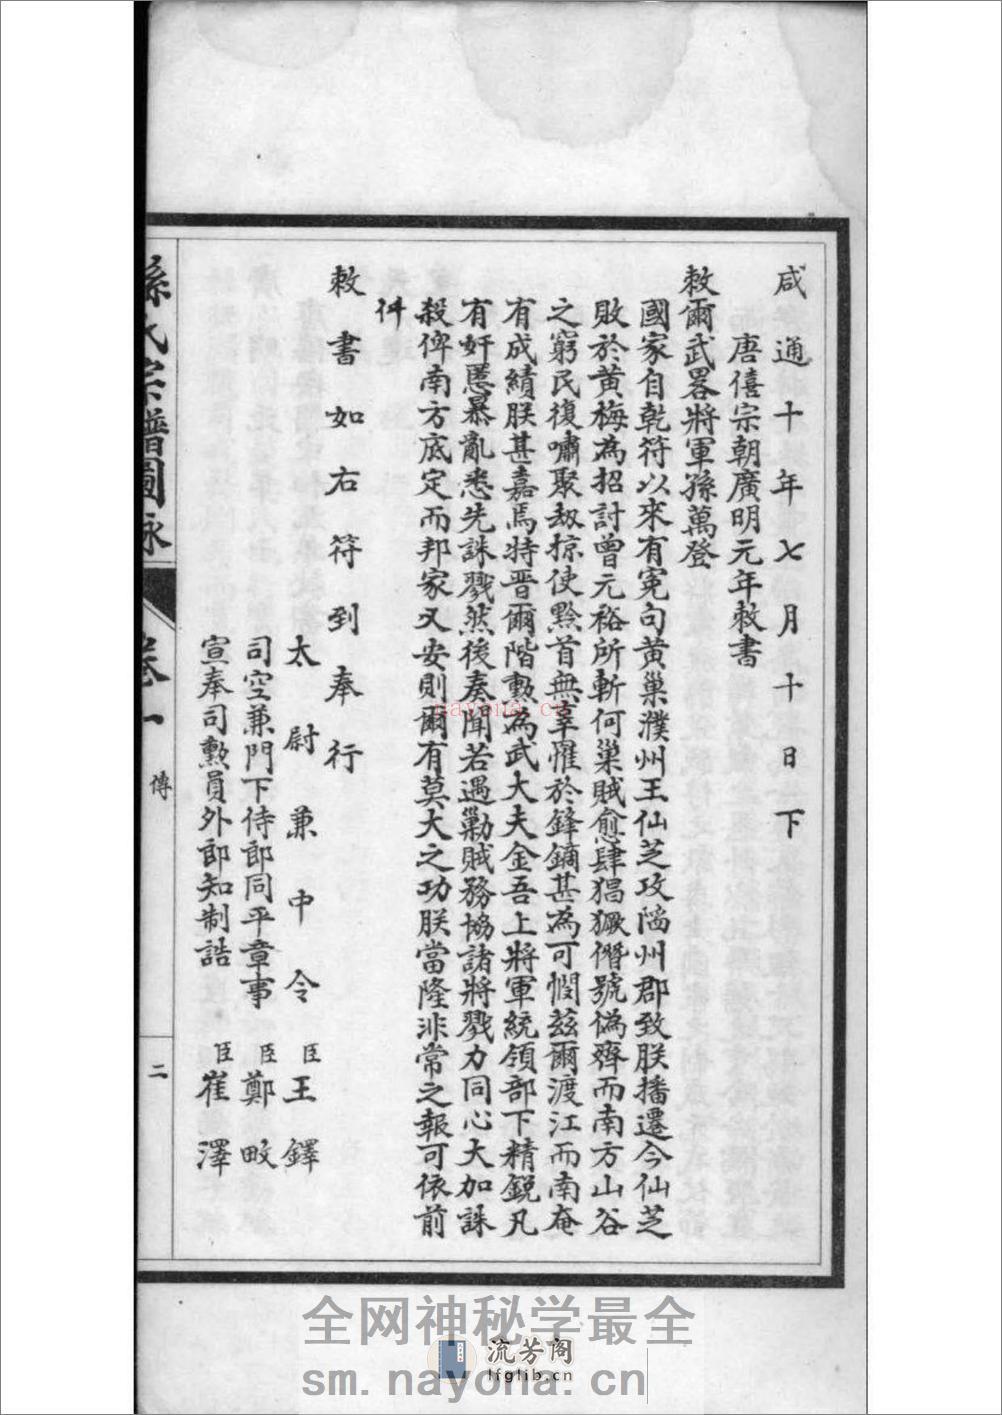 咸通十年七月十日下
唐僖宗朝廣明元年敕書
敕爾武畧將軍孫萬登
國家自乾符以來有寃句黄巢濮州王仙芝攻陷州郡致朕播遷今仙芝
敗於黄梅為招討曾元裕所斬何巢賊愈肆猖獗僭號偽齊而南方山谷
之窮民復嘯聚刼掠使黔首無辜罹於鋒鏑甚為可憫茲爾渡江而南奄
有成績朕甚嘉焉特晋爾階勲為武大夫金吾上將軍統領部下精鋭凡
有奸慝暴亂悉先誅戮然後奏聞若遇勦賊務協諸將戮力同心大加誅
殺俾南方底定而邦家乂安則爾有莫大之功朕當隆非常之報可依前
件
敕書如右符到奉行
太尉兼中令臣王鐸
司空兼門下侍郎同平章事臣鄭畋
宣奉司勲員外郎知制誥臣崔澤
孫氏宗譜圖詠
卷一
傳
二
nayona.cn
全网神秘学最全
流芳阁
lfglib.cn
sm.nayona.cn